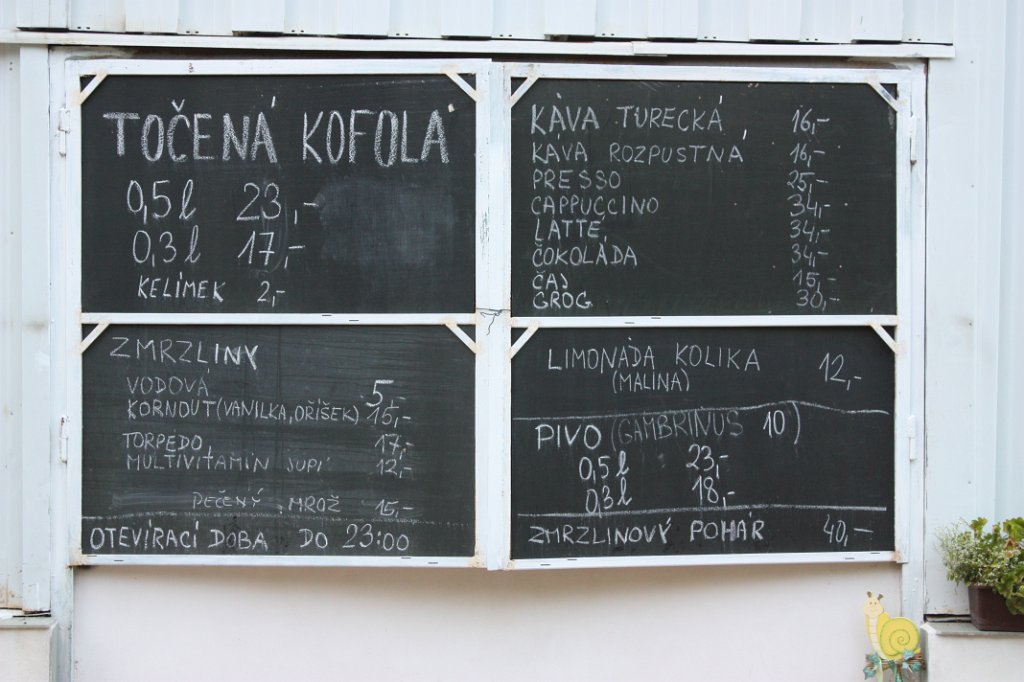 TOČENÁ KOFOLA
0,5 l 23,-
0,3 l 17,-
KELÍMEK 2,-
ZMRZLINY
VODOVÁ 5,-
KORNOUT (VANILKA, OŘÍŠEK) 15,-
TORPEDO, 17,-
MULTIVITAMÍN JUPÍ 12,-
PEČENÝ MROŽ 15,-
OTEVÍRACÍ DOBA DO 23:00
KÁVA TURECKÁ 16,-
KÁVA ROZPUSTNÁ 16,-
PRESSO 25,-
CAPPUCCINO 34,-
LATTE 34,-
ČOKOLÁDA 34,-
ČAJ 15,-
GROG 30,-
LIMONÁDA KOLIKA 12,-
(MALINA)
PIVO (GAMBRINUS 10)
0,5 l 23,-
0,3 l 18,-
ZMRZLINOVÝ POHÁR 40,-